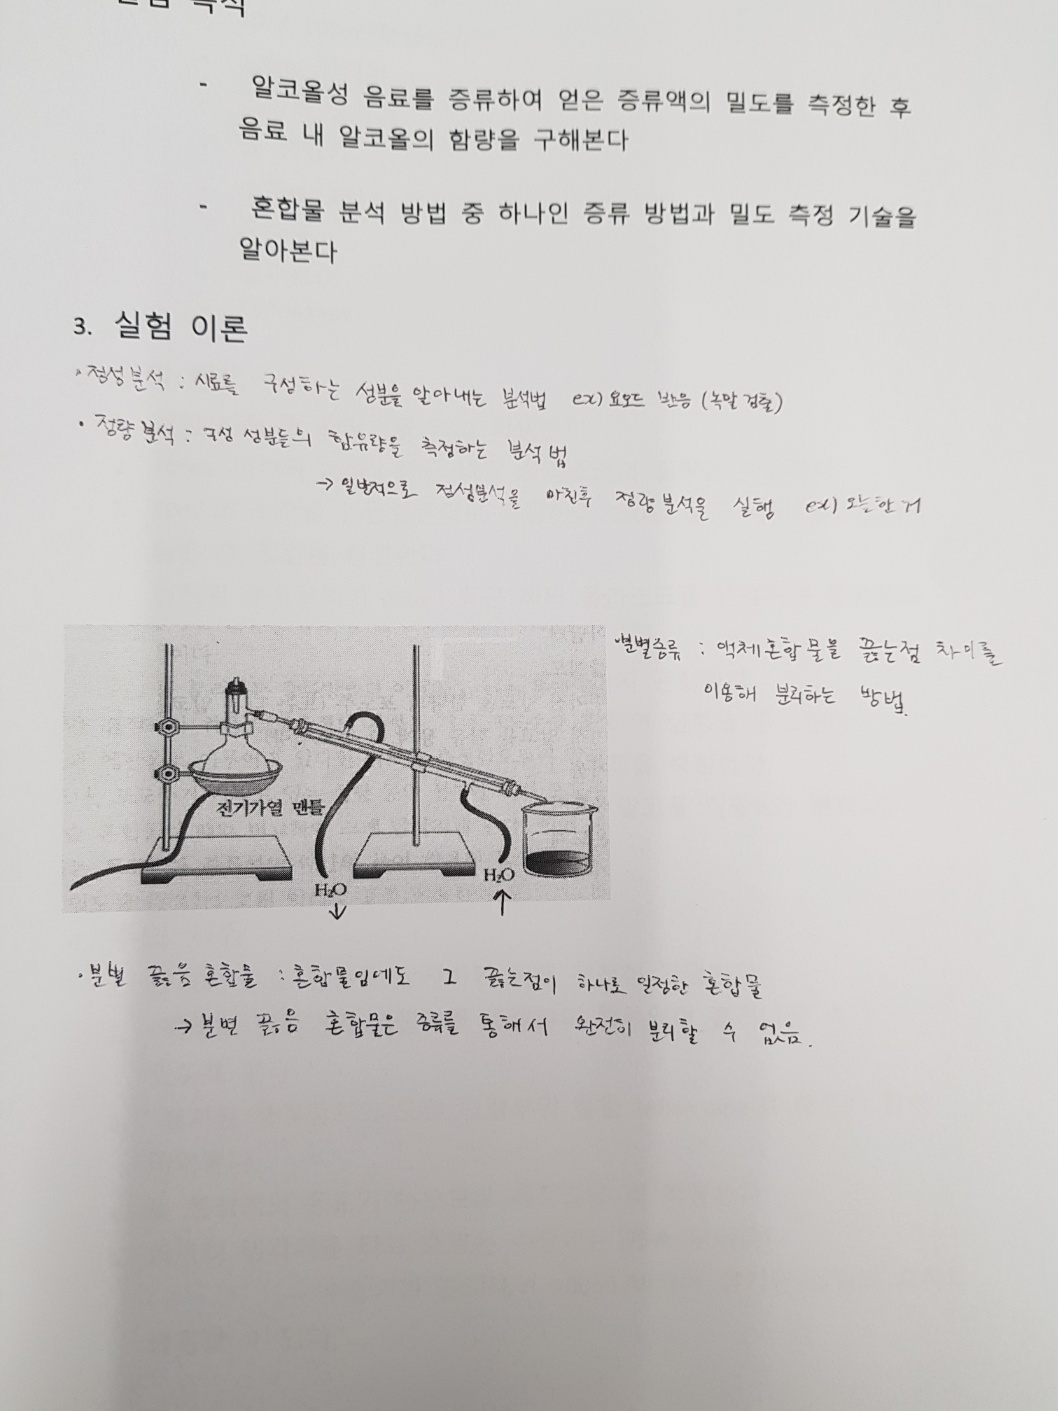 실험 목적
- 알코올성 음료를 증류하여 얻은 증류액의 밀도를 측정한 후
음료 내 알코올의 함량을 구해본다
- 혼합물 분석 방법 중 하나인 증류 방법과 밀도 측정 기술을
알아본다
3. 실험 이론
· 정성분석 : 시료를 구성하는 성분을 알아내는 분석법 ex) 요오드 반응 (녹말 검출)
· 정량분석 : 구성 성분들의 함유량을 측정하는 분석법
→ 일반적으로 정성분석을 마친후 정량분석을 실행 ex) 오늘한거
분별증류 : 액체혼합물을 끓는점 차이를
이용해 분리하는 방법.
전기가열 맨틀
H₂O
H₂O
· 분별 끓음 혼합물 : 혼합물임에도 그 끓는점이 하나로 일정한 혼합물
→ 분변 끓음 혼합물은 증류를 통해서 완전히 분리할 수 없음.